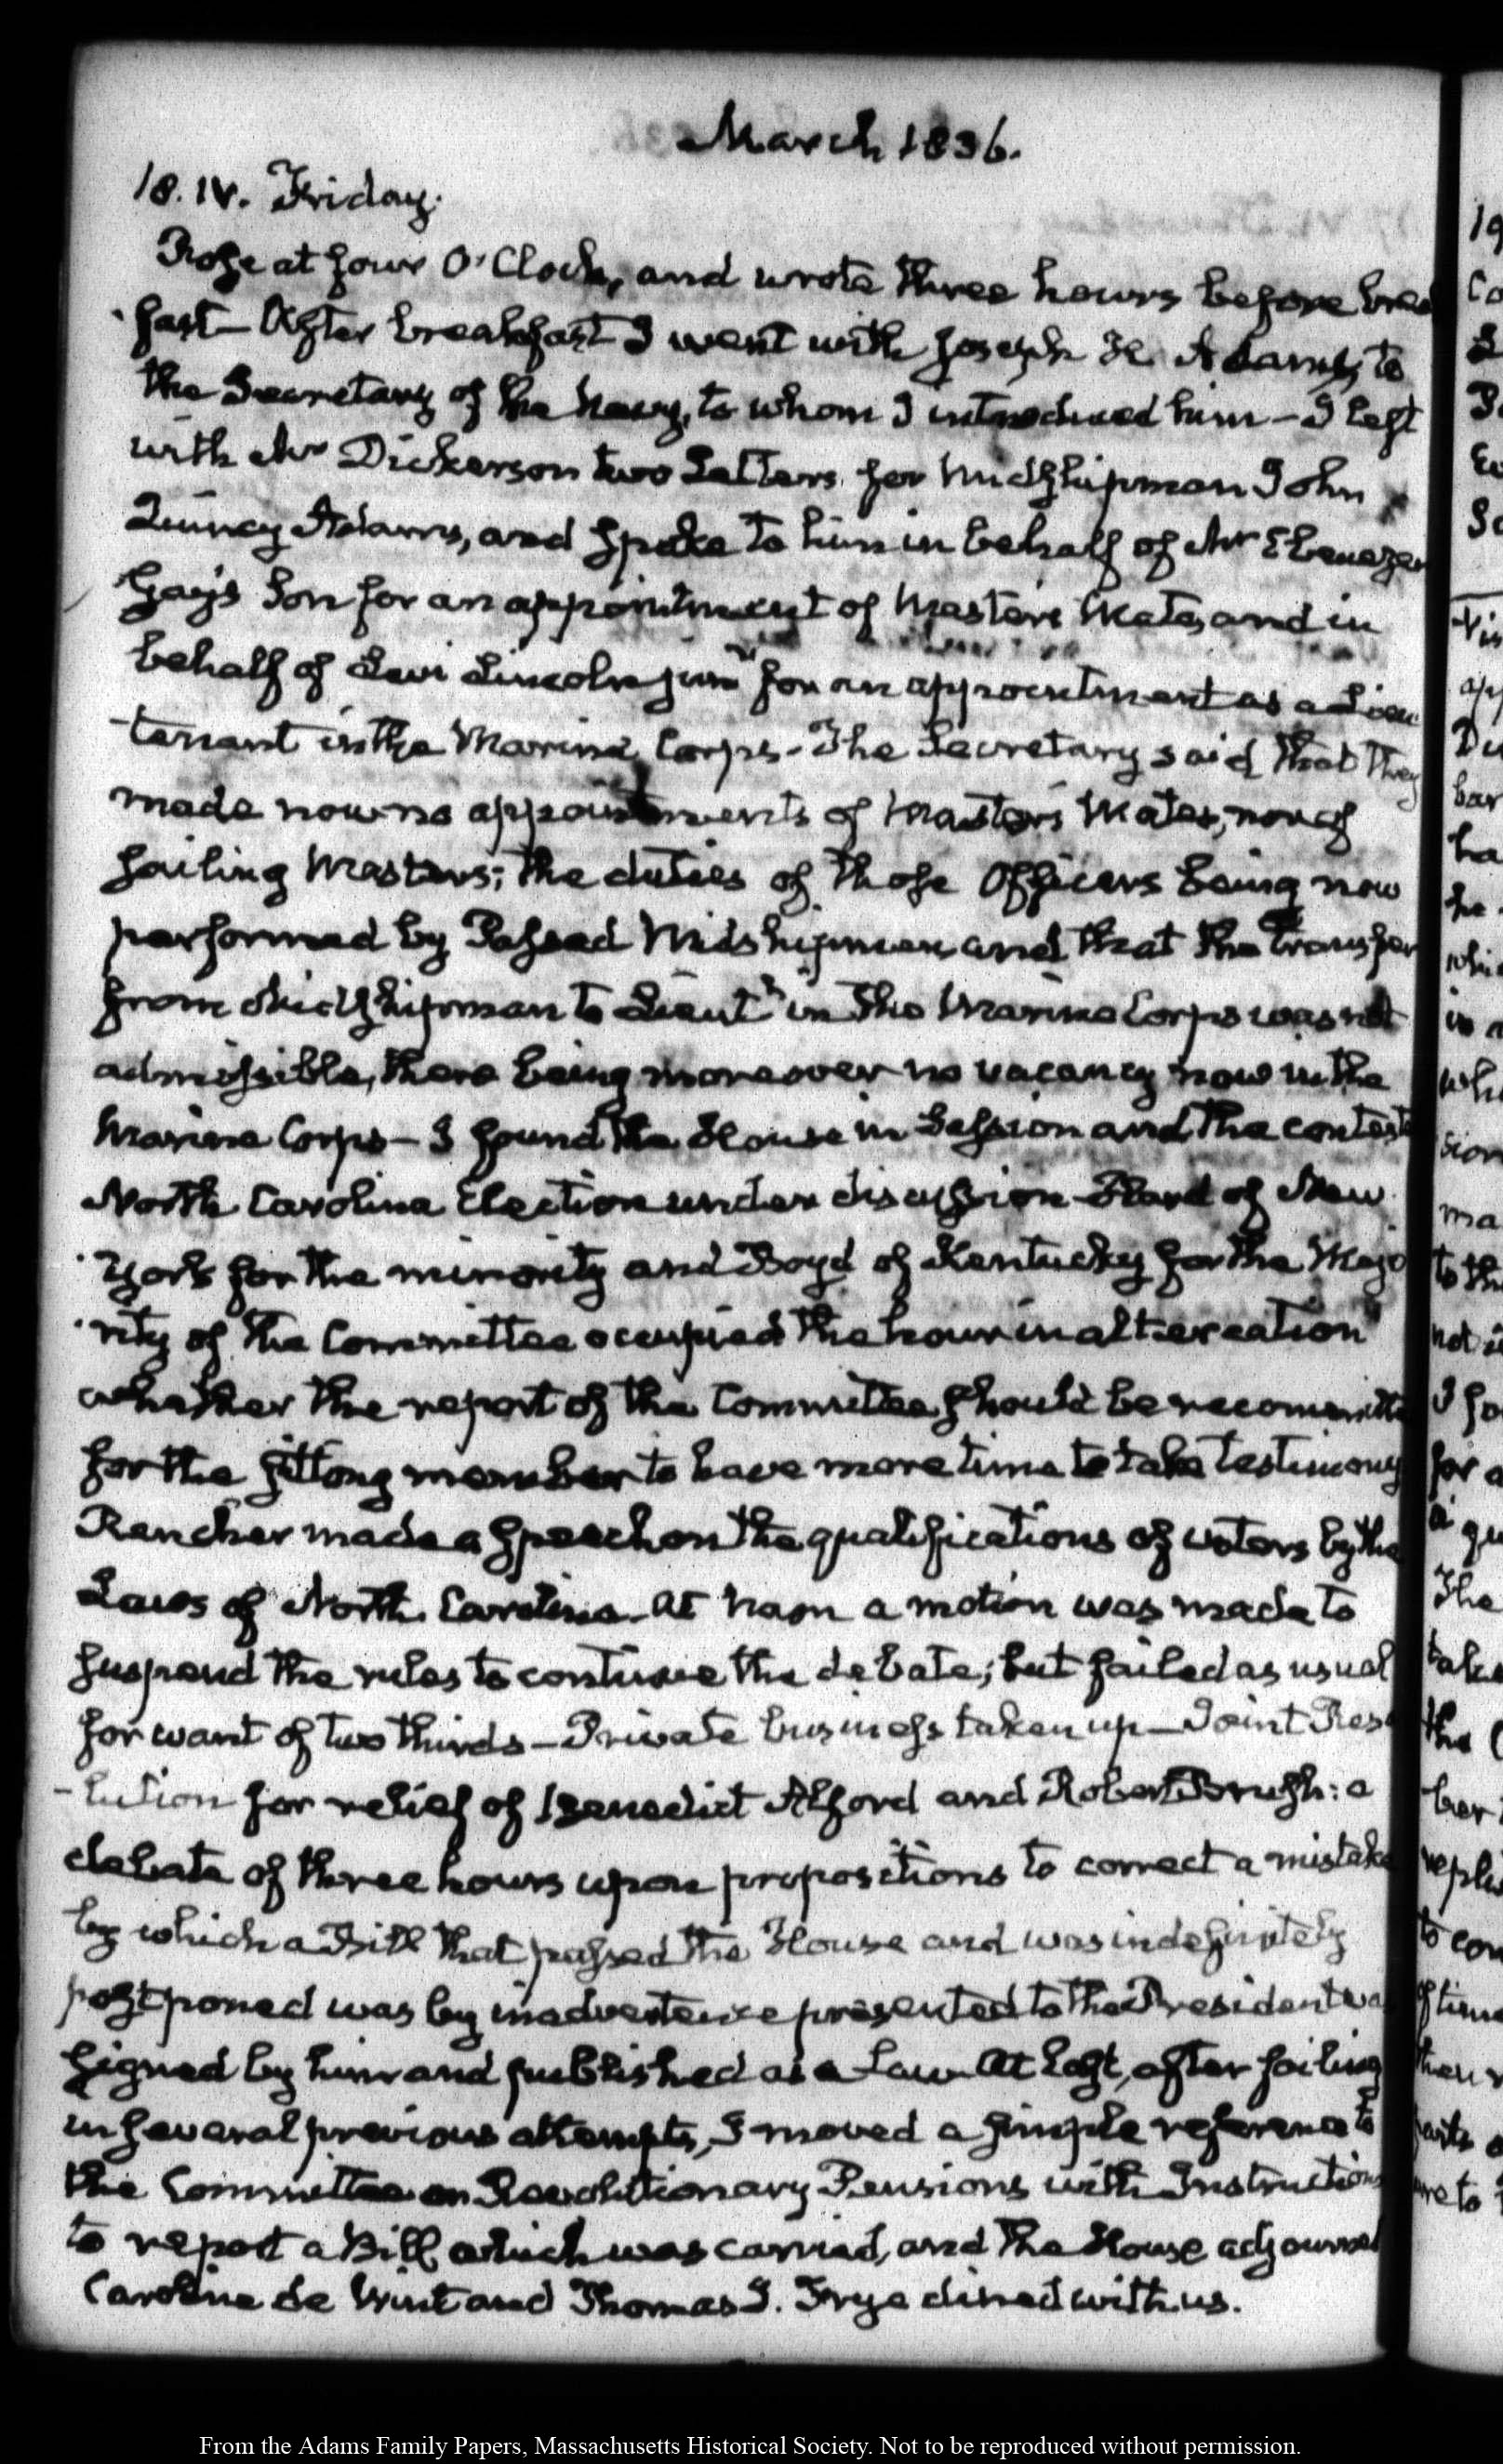 March 1836.
18. IV. Friday.
Rose at four O'Clock, and wrote three hours before brea
fast – After breakfast I went with Joseph H. Adams, to
the Secretary of the Navy, to whom I introduced him – I left
with Mr Dickerson two Letters for Midshipman John
Quincy Adams, and spoke to him in behalf of Mr Ebenezer
Gay's Son for an appointment of Master's Mate, and in
behalf of Levi Lincoln junr for an appointment as a Lieu
-tenant in the Marine Corps – The Secretary said that they
made now no appointments of Master's Mates, nor of
sailing Masters; the duties of those Officers being now
performed by Passed Midshipmen and that the transfer
from Midshipman to Lieutt in the Marine Corps was not
admissible, there being moreover no vacancy now in the
Marine Corps – I found the House in Session and the contest
North Carolina Election under discussion – Hard of New
York for the minority and Boyd of Kentucky for the Majo
rity of the Committee occupied the hour in altercation
whether the report of the Committee should be recommitt
for the sitting member to have more time to take testimony
Rencher made a Speech on the qualifications of voters by the
Laws of North Carolina – At noon a motion was made to
suspend the rules to continue the debate; but failed as usual
for want of two thirds – Private business taken up – Joint Reso
-lution for relief of Benedict Alford and Robert Brush: a
debate of three hours upon propositions to correct a mistake
by which a Bill that passed the House and was indefinitely
postponed was by inadvertence presented to the President was
signed by him and published as a Law. At last, after failing
in several previous attempts, I moved a simple reference to
the Committee on Revolutionary Pensions with Instructions
to report a Bill which was carried, and the House adjourned
Caroline de Wint and Thomas J. Frye dined with us.
From the Adams Family Papers, Massachusetts Historical Society. Not to be reproduced without permission.